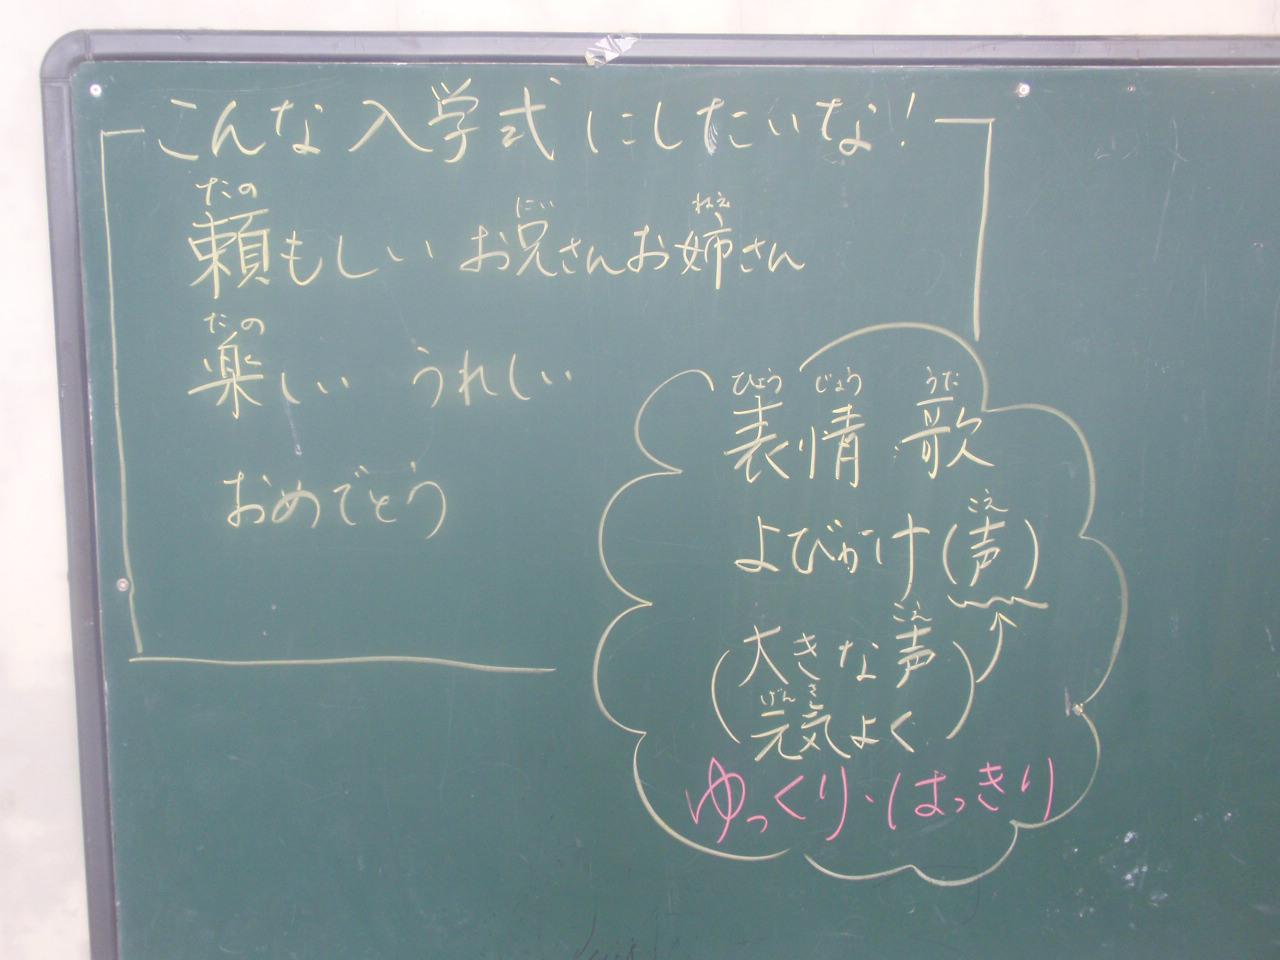 こんな入学式にしたいな!
たの
頼もしい お兄さんお姉さん
にい ねえ
たの
楽しい うれしい
おめでとう
ひょう じょう うた
表情 歌
こえ
よびかけ(声)
こえ
(大きな声
げん き
元気よく)
ゆっくり・はっきり